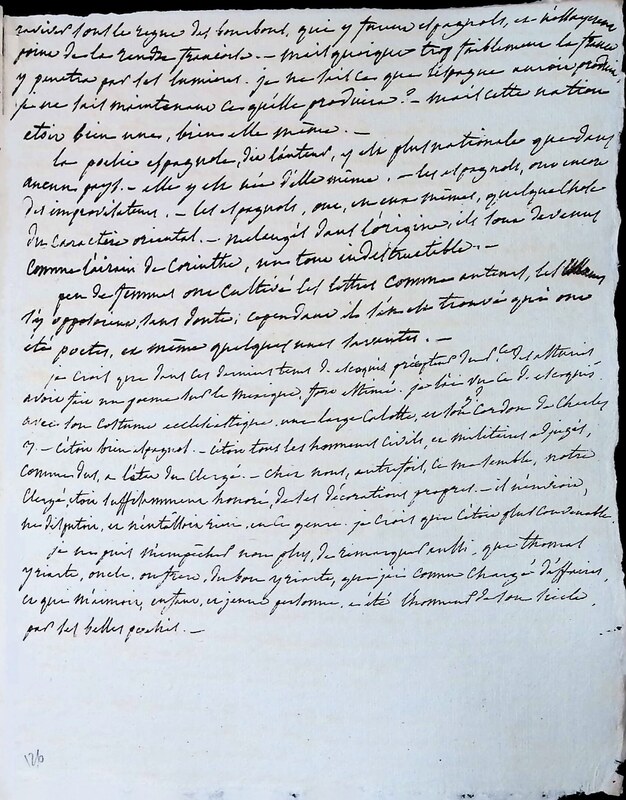 sous le regne des bourbons, qui y furent espagnols, et n'essayerent
point de la rendre francoise. - mais quoique trop faiblement la france
y penetra par ses lumieres. je ne sais ce que l'espagne auroit produit,
je ne sais maintenant ce qu'elle produira? - mais cette nation
etoit bien une, bien elle même. -
la poësie espagnole, dit l'auteur, y est plus nationale que dans
aucun pays. - elle y est née d'elle même. - les espagnols, ont encore
des improvisateurs. - les espagnols, ont, en eux mêmes, quelque chose
du caractere oriental. - melangés dans l'origine, ils sont devenus
comme l'airain de Corinthe, un tout indestructible. -
peu de femmes ont cultivé les lettres comme auteurs, les
s'y opposoient, sans doute; cependant il s'en est trouvé qui ont
été poetes, et même quelques unes savantes. -
je crois que dans ces derniers tems d. escoiquiz précepteur du
avoit fait un poeme sur le mexique, fort estimé. je l'ai vu ce d. escoiquiz
avec son costume ecclesiastique, une large calotte, et son cordon de Charles
3. - c'etoit bien espagnol. - c'etoit tous les honneurs civils, et militaires adjugés,
comme dus, a l'etat du clergé. - chez nous, autrefois, ce me semble, notre
clergé, etoit suffisamment honoré, de ses décorations propres. - il n'envioit,
ne disputoit, et n'entassoit rien, en ce genre. je crois que c'etoit plus convenable.
je ne puis m'empêcher non plus, de remarquer ici, que thomas
yriarte, oncle, ou frere, du bon yriarte, que j'ai connu chargé d'affaires,
et qui m'aimoit, enfant, et jeune personne, a été l'honneur de son siecle,
par ses belles poësies. -
126